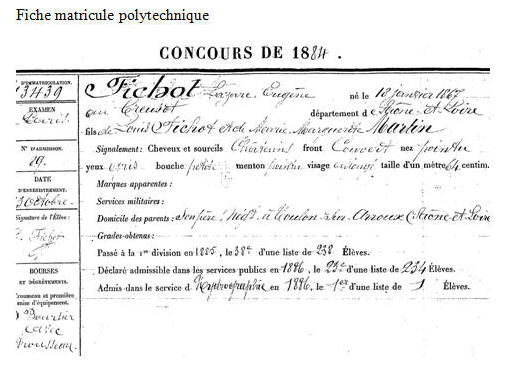 Fiche matricule polytechnique
CONCOURS DE 1884.
N° D'IMMATRICULATION.
13439
EXAMEN
Paris
N° D'ADMISSION.
89.
DATE
D'ENREGISTREMENT.
Octobre.
Signature de l'Élève:
Fichot
BOURSES
ET DÉGRÈVEMENTS.
Trousseau et première
mise d'équipement.
Boursier
avec
Trousseau
Fichot Lazare Eugène né le 18 Janvier 1867
au Creusot département de Saône-et-Loire
fils de Louis Fichot et de Marie Marguerite Martin
Signalement: Cheveux et sourcils Châtains front Couvert nez pointu
yeux gris bouche petite menton pointu visage allongé taille d'un mètre 64 centim.
Marques apparentes:
Services militaires:
Domicile des parents: Son père, Nég.t à Toulon-sur-Arroux (Saône-et-Loire
Grades obtenus:
Passé à la 1re division en 1885, le 38e d'une liste de 238 Élèves.
Déclaré admissible dans les services publics en 1886, le 23e d'une liste de 234 Élèves.
Admis dans le service d'Hydrographie en 1886, le 1er d'une liste de 1 Élèves.